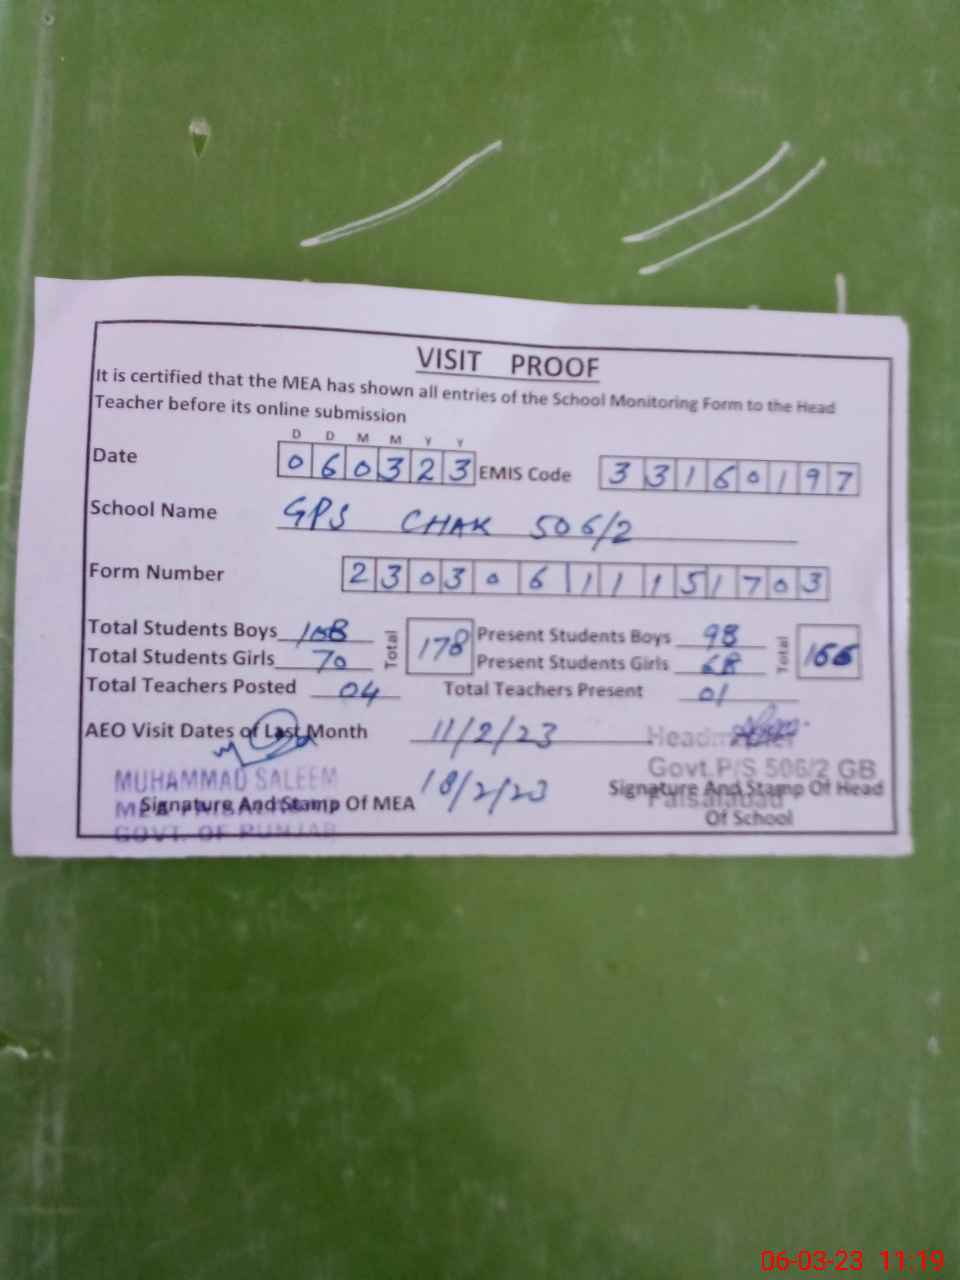 VISIT PROOF
It is certified that the MEA has shown all entries of the School Monitoring Form to the Head
Teacher before its online submission
D D M M Y Y
Date 060323 EMIS Code 33160197
School Name GPS CHAK 506/2
Form Number 23030611151703
Total Students Boys 108 Total 178 Present Students Boys 98 Total 166
Total Students Girls 70 Present Students Girls 68
Total Teachers Posted 04 Total Teachers Present 01
AEO Visit Dates of Last Month 11/2/23
18/2/23
MUHAMMAD SALEEM
Signature And Stamp Of MEA
GOVT. OF PUNJAB
Govt.P/S 506/2 GB
Faisalabad
Signature And Stamp Of Head
Of School
06-03-23 11:19